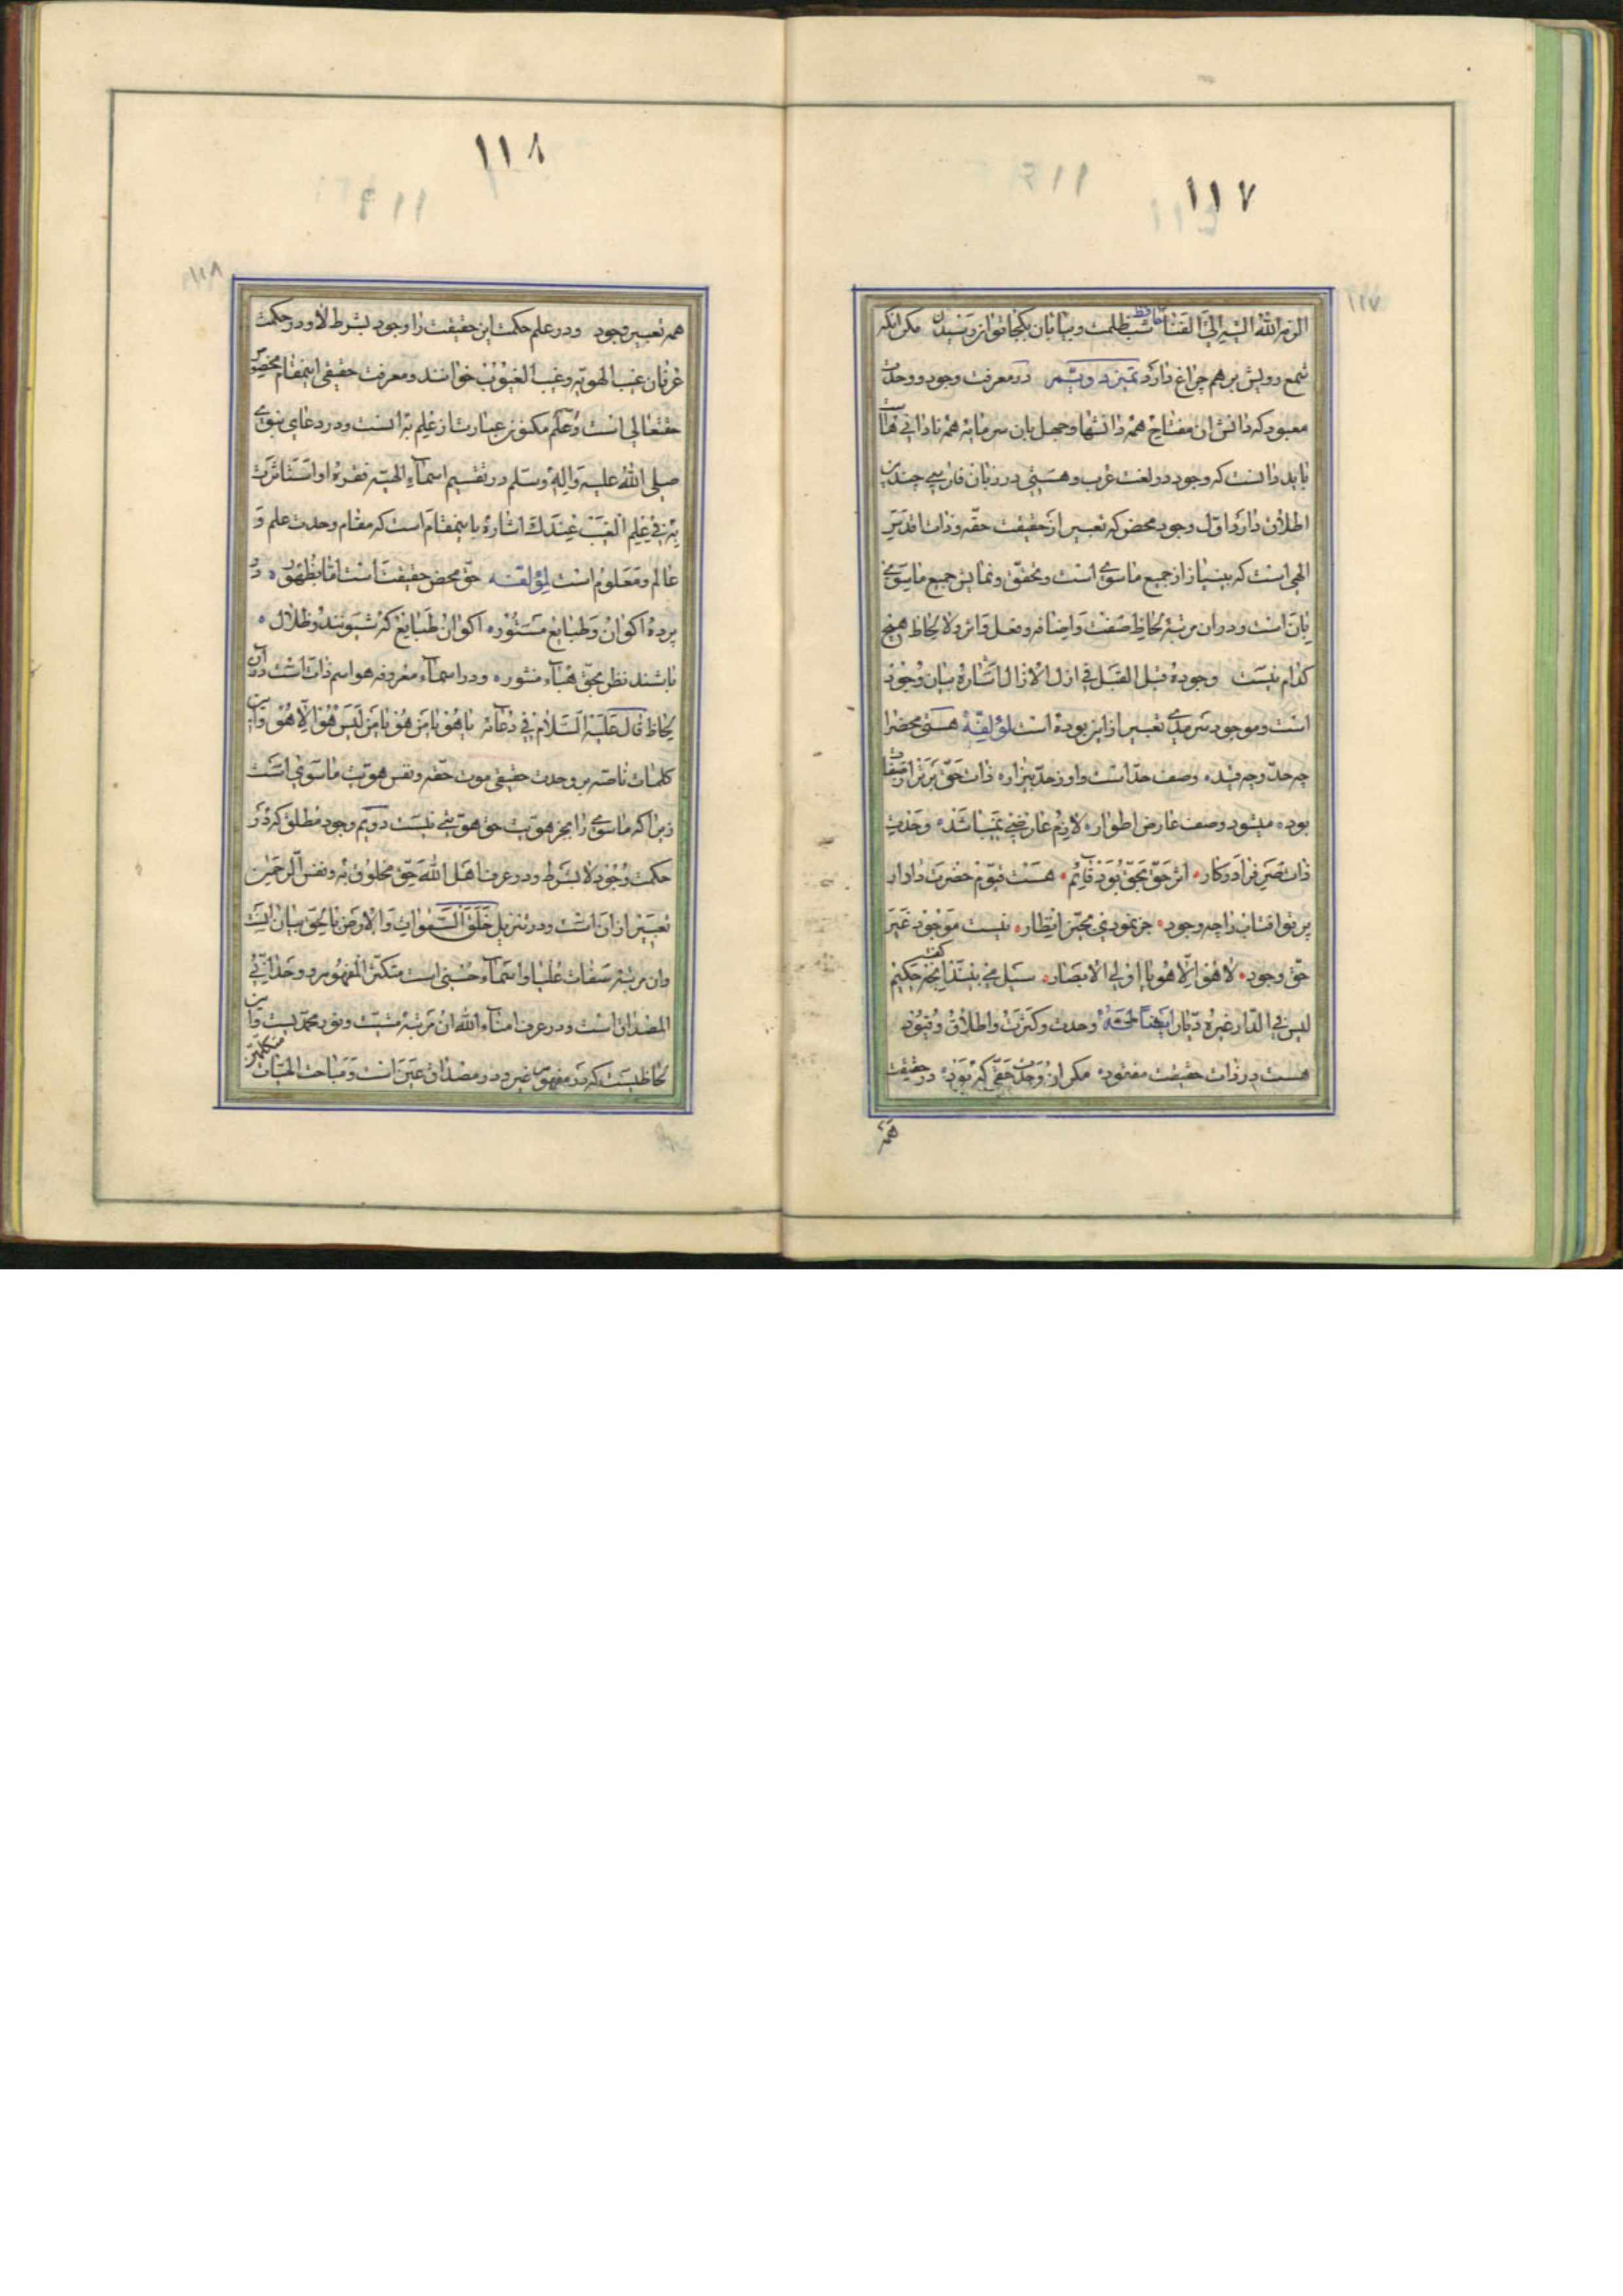 ۱۱۷
۱۱۷
الی الله السیر الی الفنا حافظ شب ظلمت و بیابان بکجا توان رسیدن مکر انکه
شمع رویش برهم چراغ دارد تمیز د و یتمر در معرفت وجود و وحدت
معبود که دانش ان مفتاح همه دانشها و جهل بان سرمایه همه نادانی هاست
باید دانست که وجود در لغت عرب و هستی در زبان فارسی چندین
اطلاق دارد اول وجود محض که تعبیر از حقیقت حقه و ذات اقدس
الهی است که بینیاز از جمیع ماسوی است و تحقق و نمایش جمیع ماسوی
بان است و در ان مرتبه لحاظ صفت و اضافه و فعل و اثر و لا لحاظ هیچ
کدام نیست وجوده قبل القبل فی ازل الازال اشاره بیان وجود
است و موجود سرمدی تعبیر از این بوده است لمؤلفه هستی محض را
چه حد و چه قید وصف حد است و او ز حد بیزار ذات حق برتر از صفات
بود میشود وصف عارض اطوار لازم عارضی نمیباشد وحدت
ذات فرا د و کار اثر حق بحق بود قایم هست قیوم حضرت دادار
پرتو افتاب را چه وجود جز نمودی بانظار نیست موجود غیر
حق وجود لا هو الا هو یا اولی الابصار سیل می بیند انچه گفت حکیم
لیس فی الدار غیره دیار ایضاً لمؤلفه وحدت و کثرت و اطلاق و قیود
هست در ذات حقیقت مفقود مکر ان وحدت حقی که بود در حقیقت
همه
۱۱۸
۱۱۸
همه تعبیر وجود و در علم حکمت این حقیقت را وجود بشرط لا و در حکمت
عرفان غیب الهویه و غیب الغیوب خوانند و معرفت حقیقی اینمقام مخصوص
حقتعالی است و علم مکنون عبارت از علم به است و در دعای نبوی
صلی الله علیه و اله و سلم در تقسیم اسماء الهیه فقره او استاثرت
به فی علم الغیب عندک اشاره باینمقام است که مقام وحدت علم و
عالم و معلوم است لمؤلفه حق محض حقیقت است اما بظهور در
پرده اکوان و طبایع مستور اکوان طبایع که شیونند و ظلال
باشند نظر بحق هباء منثور و در اسماء معروفه هو اسم ذات است در ان
لحاظ قال علیه السلام فی دعائه یا هو یا من هو یا من لیس هو الا هو و این
کلمات ناصه بر وحدت حقیقی هویت حقه و نفی هویت ماسوی است
زیرا که ماسوی را بجز هویت حق هویتی نیست دویم وجود مطلق که در
حکمت وجود لا بشرط و در عرف اهل الله حق مخلوق به و نفس الرحمن
تعبیر از ان است و در تنزیل خلق السموات و الارض بالحق بیان انست
و ان مرتبه صفات علیا و اسماء حسنی است متکثر المفهوم و وحدانی
المصداق است و در عرف امناء الله ان مرتبه مشیت و نور محمدیست و این
لحاظیست که در مفهوم غیر و در مصداق عین است و مباحث الهیات متکلمین